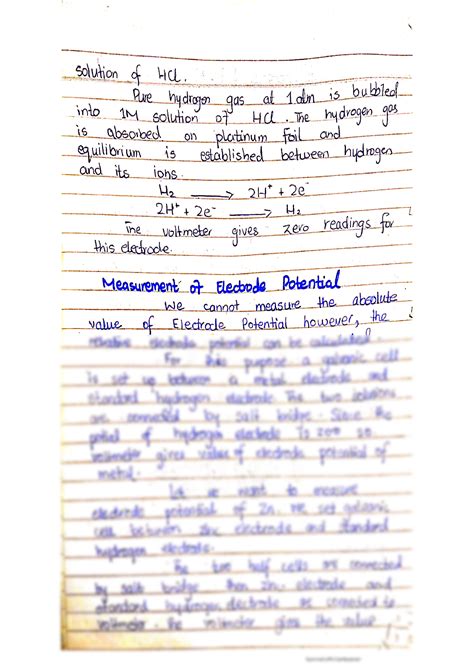 solution of HCl.
Pure hydrogen gas at 1 atm is bubbled
into 1M solution of HCl. The hydrogen gas
is absorbed on platinum foil and
equilibrium is established between hydrogen
and its ions.
H₂ ⟶ 2H⁺ + 2e⁻
2H⁺ + 2e⁻ ⟶ H₂
The voltmeter gives zero readings for
this electrode.
Measurement of Electrode Potential
We cannot measure the absolute
value of Electrode Potential however, the
electrode potential can be calculated.
For this purpose a galvanic cell
is set up between a metal electrode and
standard hydrogen electrode. The two solutions
are connected by salt bridge. Since the
of hydrogen electrode is zero so
voltmeter gives value of electrode potential of
metal.
Let we want to measure
electrode potential of Zn. We set galvanic
cell between zinc electrode and standard
hydrogen electrode.
The two half cells are connected
by salt bridge then Zn electrode and
standard hydrogen electrode are connected to
voltmeter. The voltmeter gives the value